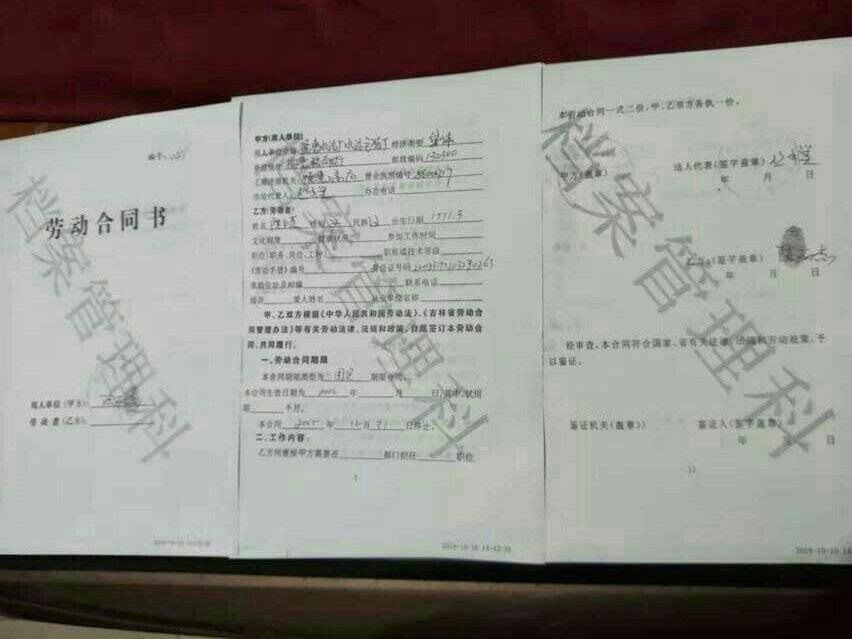 编号：
劳动合同书
用人单位（甲方）：
劳动者（乙方）：
档案管理科
甲方（用人单位）
用人单位名称 经济类型 集体
邮政编码
营业执照编号
法定代表人 办公电话
乙方（劳动者）
姓名 性别 民族 出生日期 1971.3
文化程度 健康状况 参加工作时间
职位（职务、岗位、工种） 职称或技术等级
《劳动手册》编号 身份证号码
家庭住址及邮编 联系电话
婚否 爱人姓名 从业单位名称
甲、乙双方根据《中华人民共和国劳动法》、《吉林省劳动合
同管理办法》等有关劳动法律、法规和政策，自愿签订本劳动合
同，共同履行。
一、劳动合同期限
本合同期限类型为 固定 期限合同。
本合同生效日期为 2002 年 月 日，其中，试用
期 个月。
本合同 2005 年 12 月 31 日终止。
二、工作内容：
乙方同意按甲方需要在 部门担任 职位
1
2019-10-10 14:42:36
档案管理科
本劳动合同一式二份，甲、乙双方各执一份。
甲方（盖章） 法人代表（签字盖章）
年 月 日
乙方：（签字盖章）
年 月 日
经审查，本合同符合国家、省有关法律、法规和劳动政策，予
以鉴证。
鉴证机关（盖章） 鉴证人（签字盖章）
年 月 日
11
2019-10-10 14
档案管理科